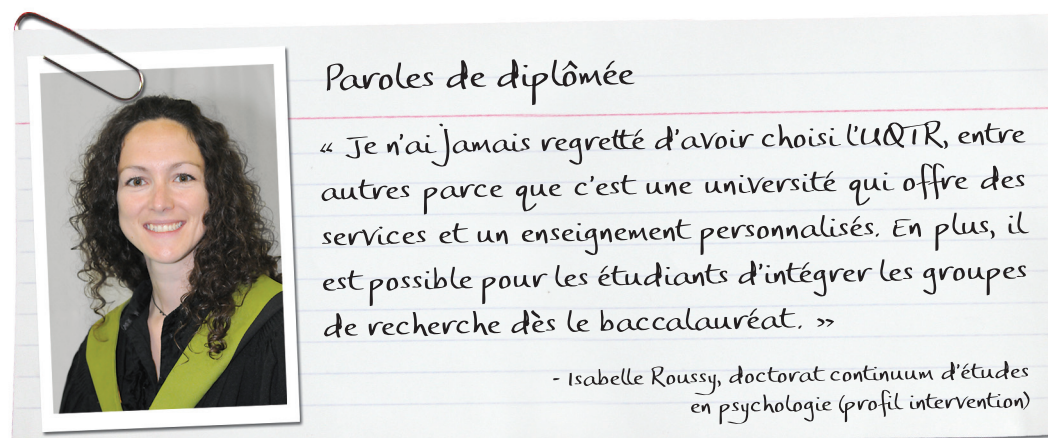 Paroles de diplômée
« Je n'ai jamais regretté d'avoir choisi l'UQTR, entre
autres parce que c'est une université qui offre des
services et un enseignement personnalisés. En plus, il
est possible pour les étudiants d'intégrer les groupes
de recherche dès le baccalauréat. »
- Isabelle Roussy, doctorat continuum d'études
en psychologie (profil intervention)